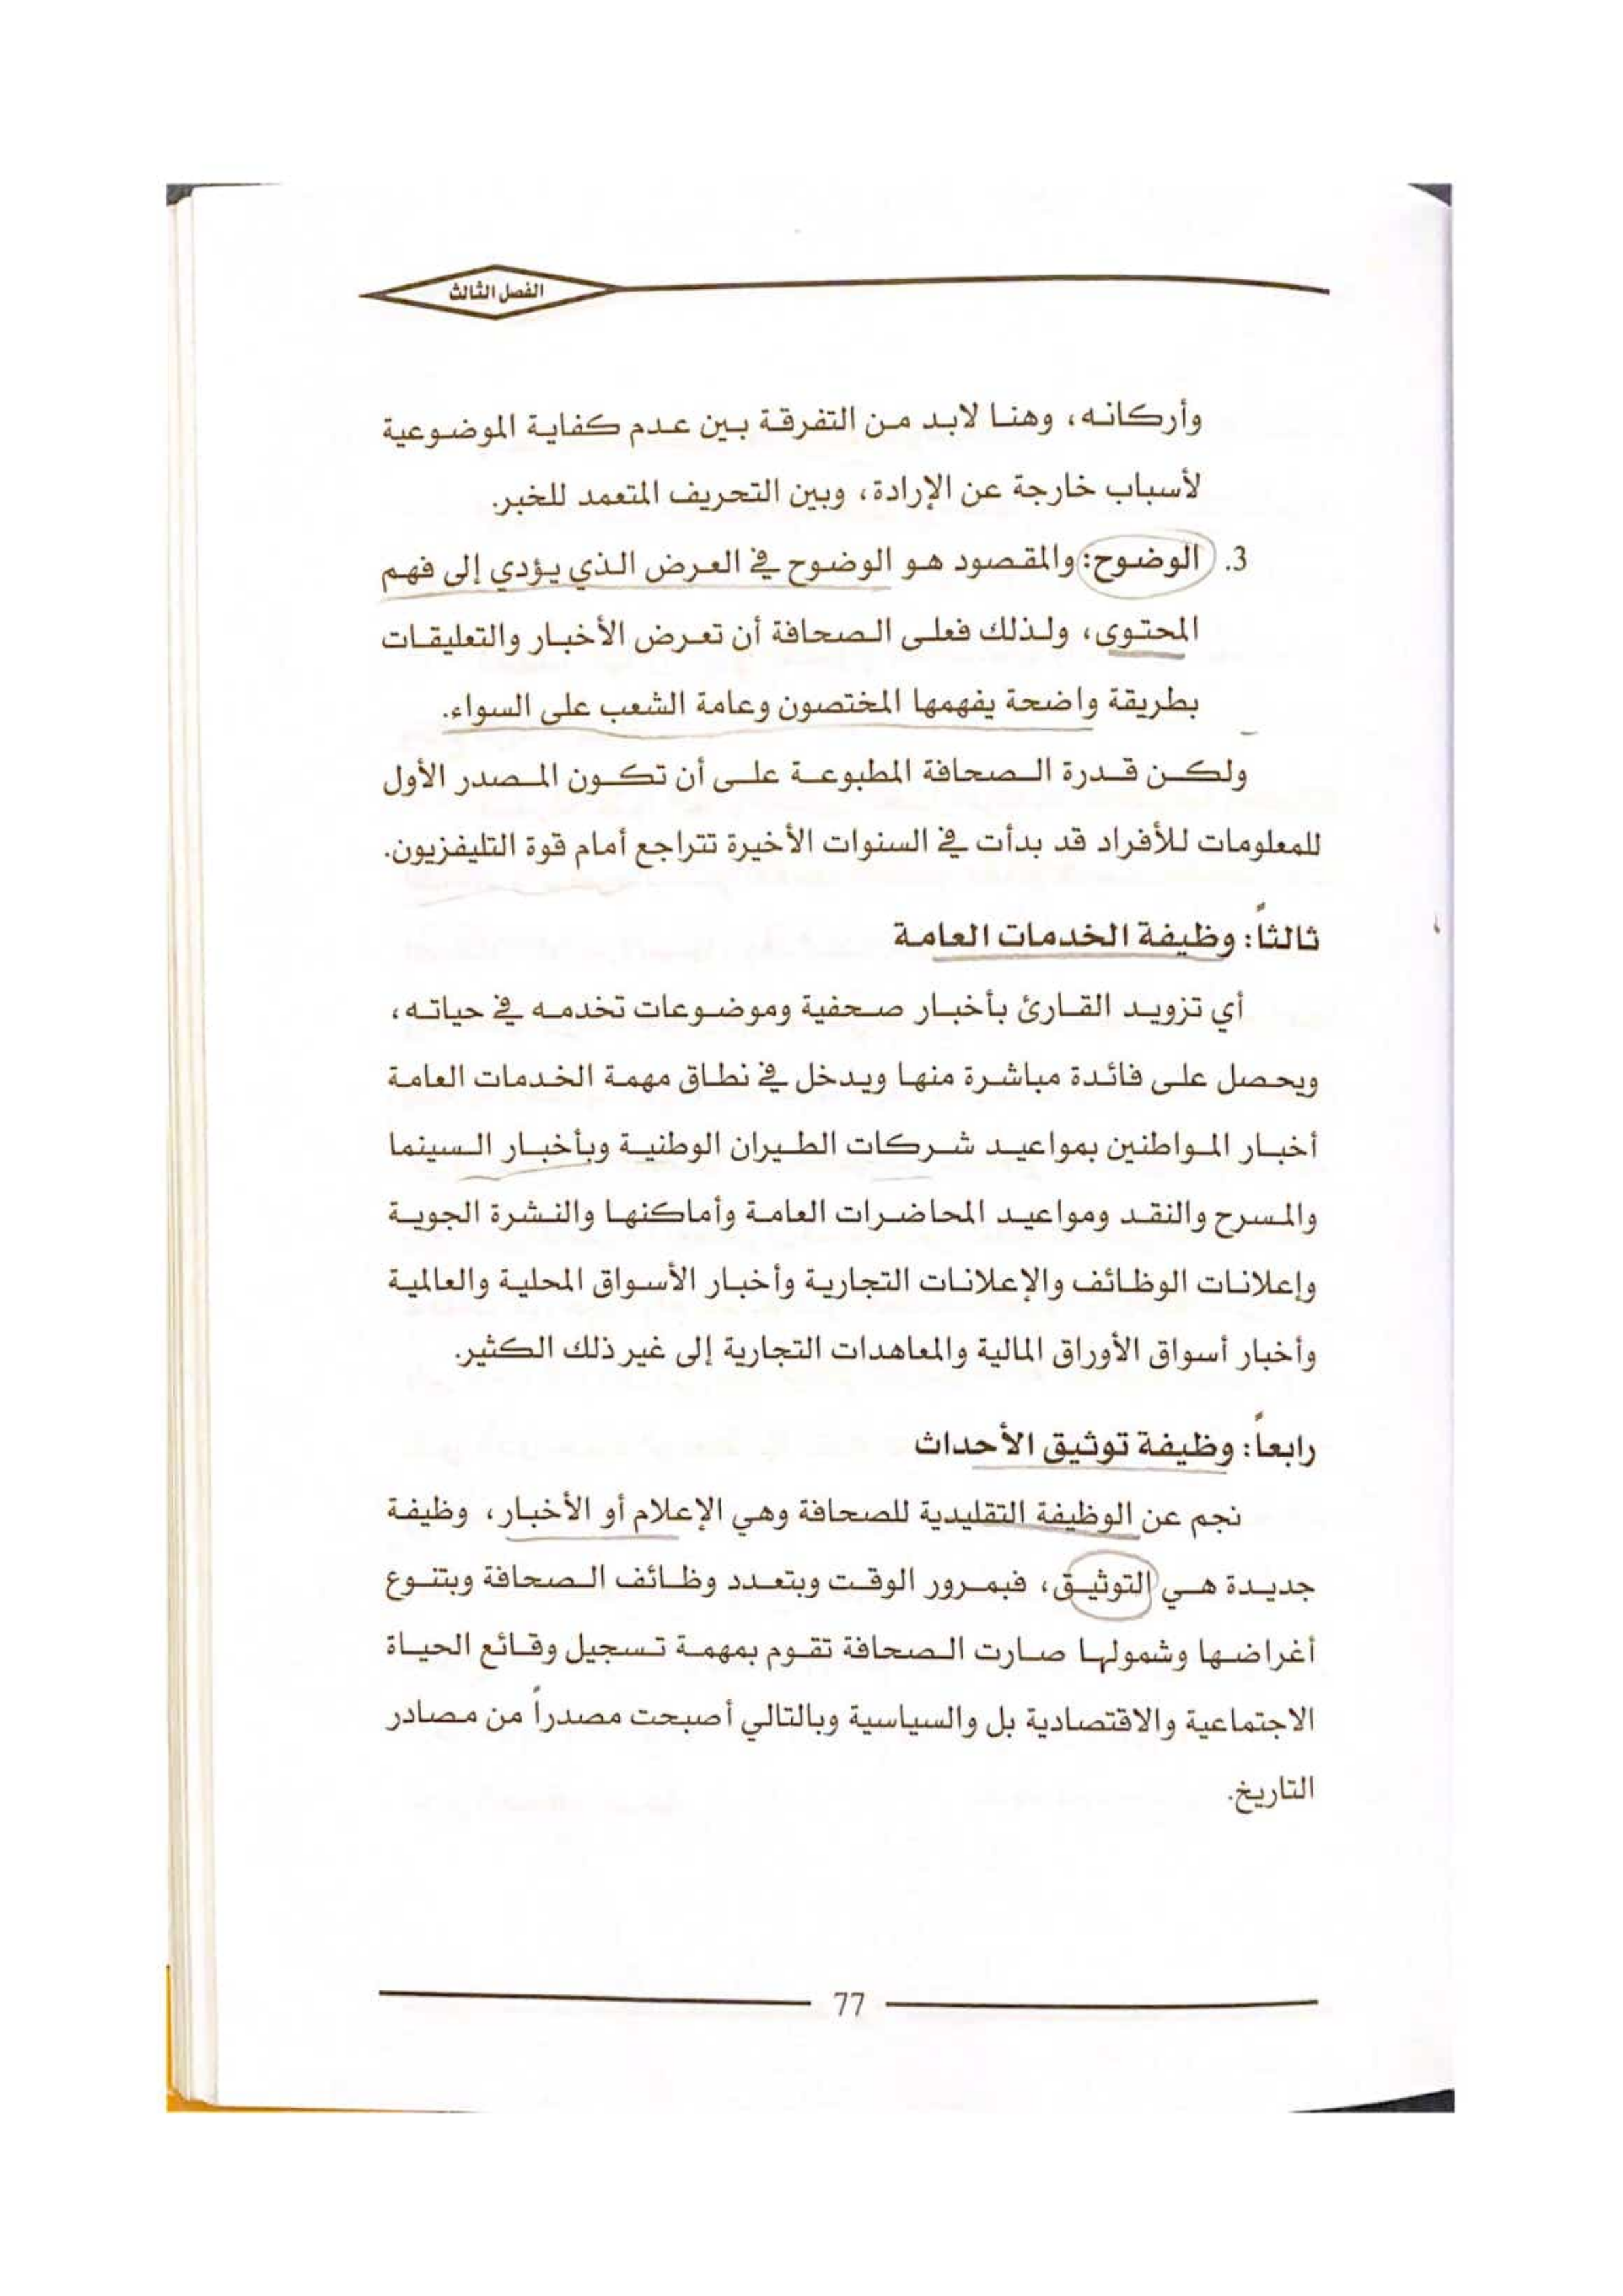 الفصل الثالث
وأركانه، وهنا لابد من التفرقة بين عدم كفاية الموضوعية
لأسباب خارجة عن الإرادة، وبين التحريف المتعمد للخبر.
3. الوضوح: والمقصود هو الوضوح في العرض الذي يؤدي إلى فهم
المحتوى، ولذلك فعلى الصحافة أن تعرض الأخبار والتعليقات
بطريقة واضحة يفهمها المختصون وعامة الشعب على السواء.
ولكن قدرة الصحافة المطبوعة على أن تكون المصدر الأول
للمعلومات للأفراد قد بدأت في السنوات الأخيرة تتراجع أمام قوة التليفزيون.
ثالثاً: وظيفة الخدمات العامة
أي تزويد القارئ بأخبار صحفية وموضوعات تخدمه في حياته،
ويحصل على فائدة مباشرة منها ويدخل في نطاق مهمة الخدمات العامة
أخبار المواطنين بمواعيد شركات الطيران الوطنية وبأخبار السينما
والمسرح والنقد ومواعيد المحاضرات العامة وأماكنها والنشرة الجوية
وإعلانات الوظائف والإعلانات التجارية وأخبار الأسواق المحلية والعالمية
وأخبار أسواق الأوراق المالية والمعاهدات التجارية إلى غير ذلك الكثير.
رابعاً: وظيفة توثيق الأحداث
نجم عن الوظيفة التقليدية للصحافة وهي الإعلام أو الأخبار، وظيفة
جديدة هي التوثيق، فبمرور الوقت وبتعدد وظائف الصحافة وبتنوع
أغراضها وشمولها صارت الصحافة تقوم بمهمة تسجيل وقائع الحياة
الاجتماعية والاقتصادية بل والسياسية وبالتالي أصبحت مصدراً من مصادر
التاريخ.
77